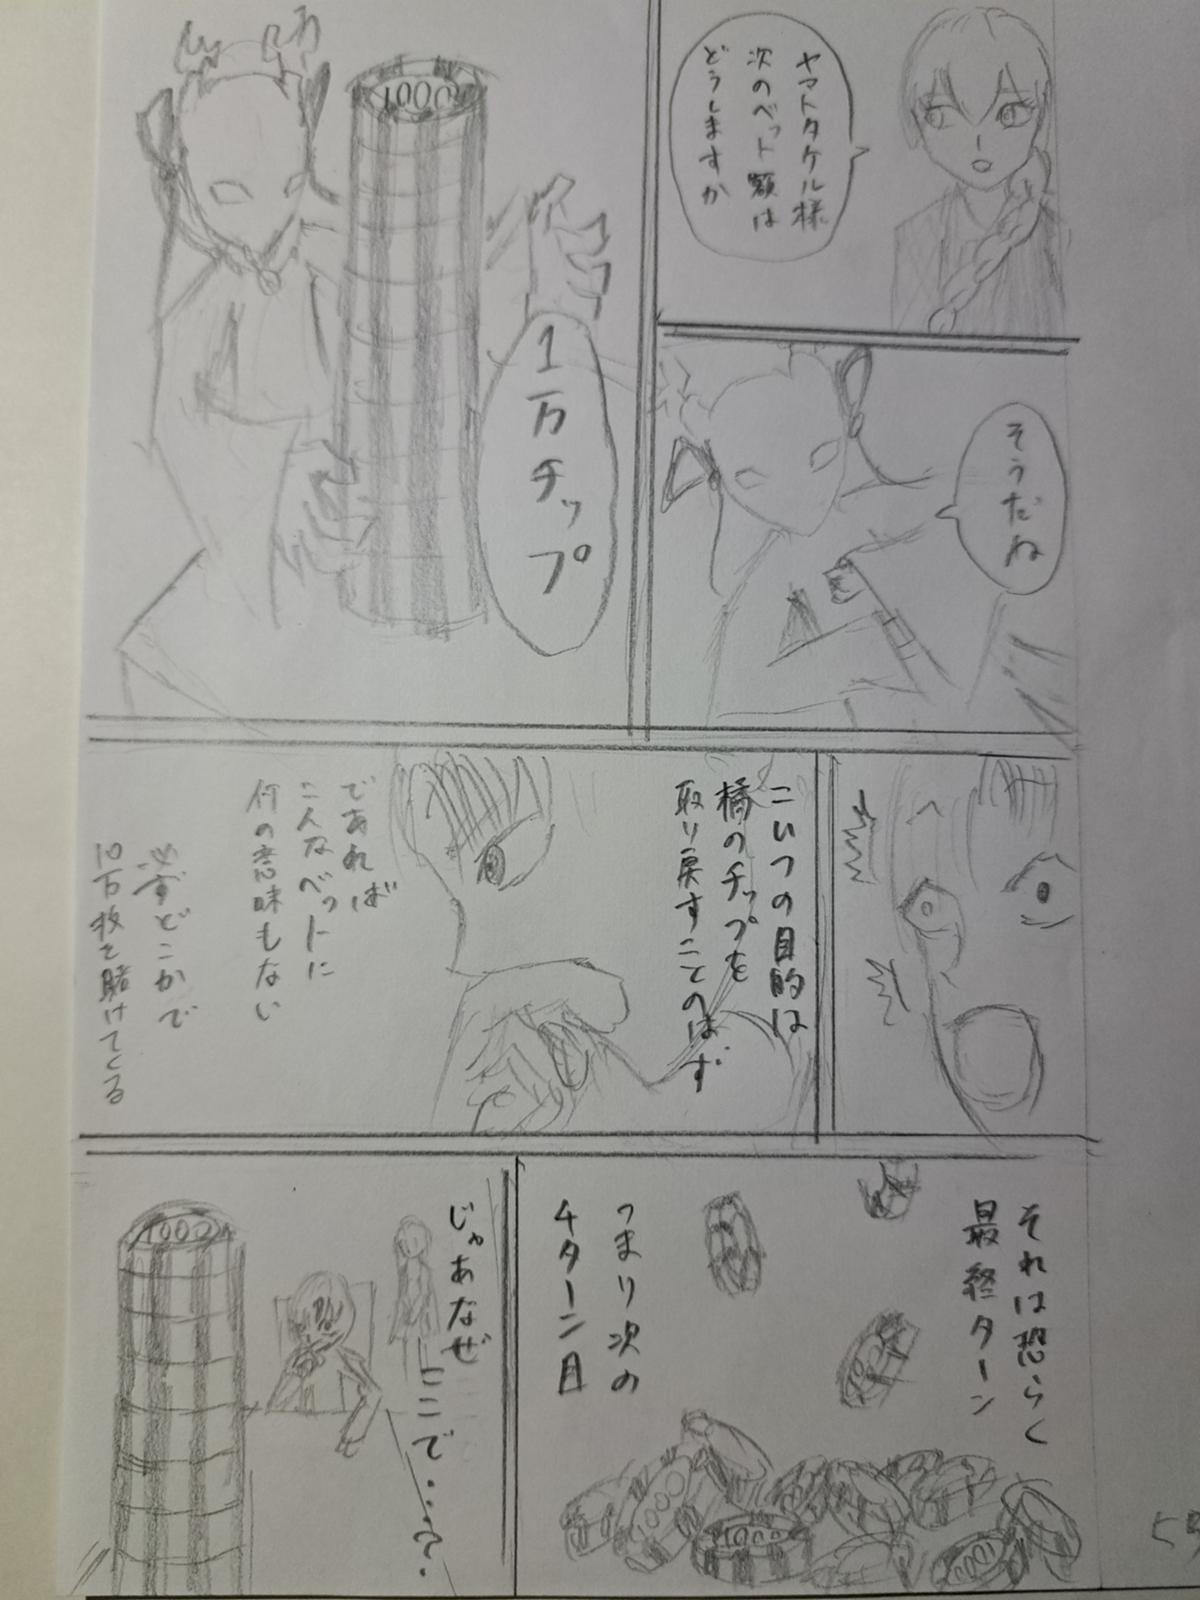 ヤマトタケル様
次のベット額は
どうしますか
そうだね
1000
1万チップ
こいつの目的は
橘のチップを
取り戻すことのはず
であれば
こんなベットに
何の意味もない
必ずどこかで
10万枚を賭けてくる
それは恐らく
最終ターン
つまり次の
4ターン目
1000
1000
じゃあなぜ
ここで……?
1000